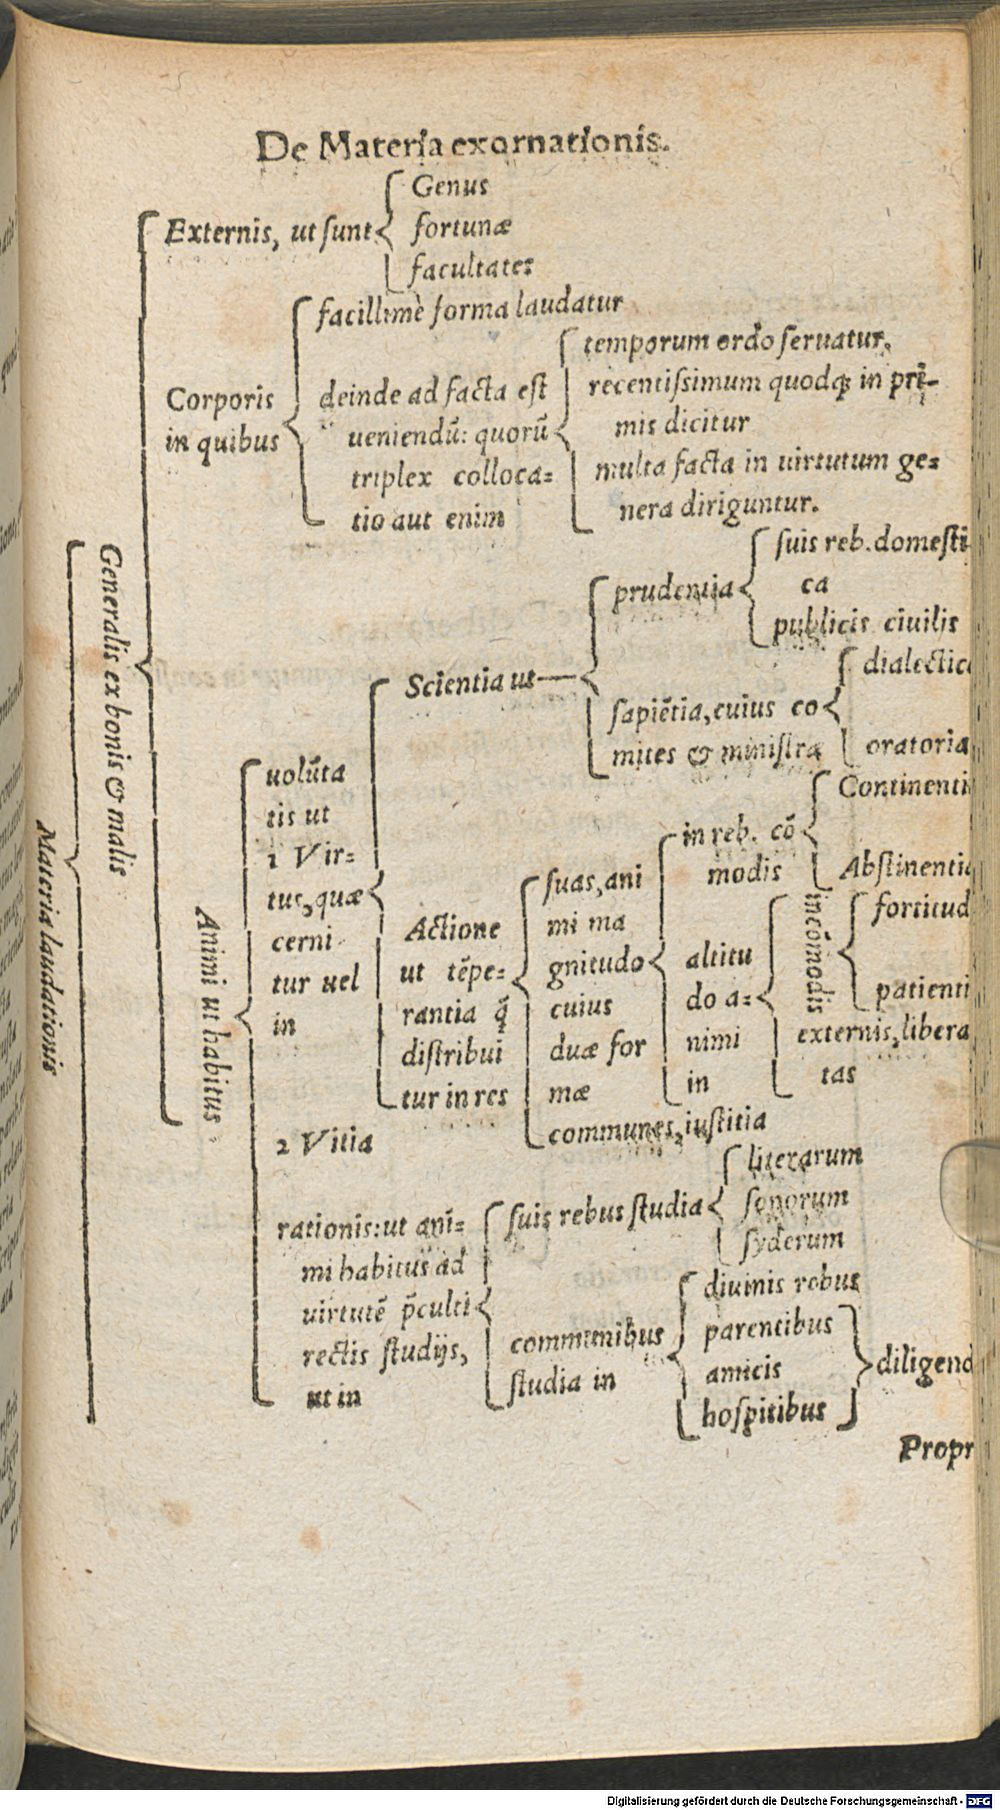 De Materia exornationis.
Materia laudationis
Generalis ex bonis & malis
Externis, ut sunt
Genus
fortunæ
facultates
Corporis
in quibus
facillimè forma laudatur
deinde ad facta est
ueniendū: quorū
triplex colloca=
tio aut enim
temporum ordo seruatur.
recentissimum quodq; in pri-
mis dicitur
multa facta in uirtutum ge=
nera diriguntur.
Animi ut habitus
uolūta
tis ut
1 Vir=
tus, quæ
cerni
tur uel
in
Scientia ut
prudentia
suis reb. domesti
ca
publicis ciuilis
sapiētia, cuius co
mites & ministræ
dialectica
oratoria
Actione
ut tēpe=
rantia q̄
distribui
tur in res
suas, ani
mi ma
gnitudo
cuius
duæ for
mæ
in reb. cō
modis
Continenti
Abstinentia
altitu
do a=
nimi
in
incōmodis
fortitud
patienti
externis, libera
tas
communes, iustitia
2 Vitia
rationis: ut ani=
mi habitus ad
uirtutē p̄culti
rectis studijs,
ut in
suis rebus studia
literarum
sonorum
syderum
communibus
studia in
diuinis rebus
parentibus
amicis
hospitibus
diligend
Propr
Digitalisierung gefördert durch die Deutsche Forschungsgemeinschaft - DFG